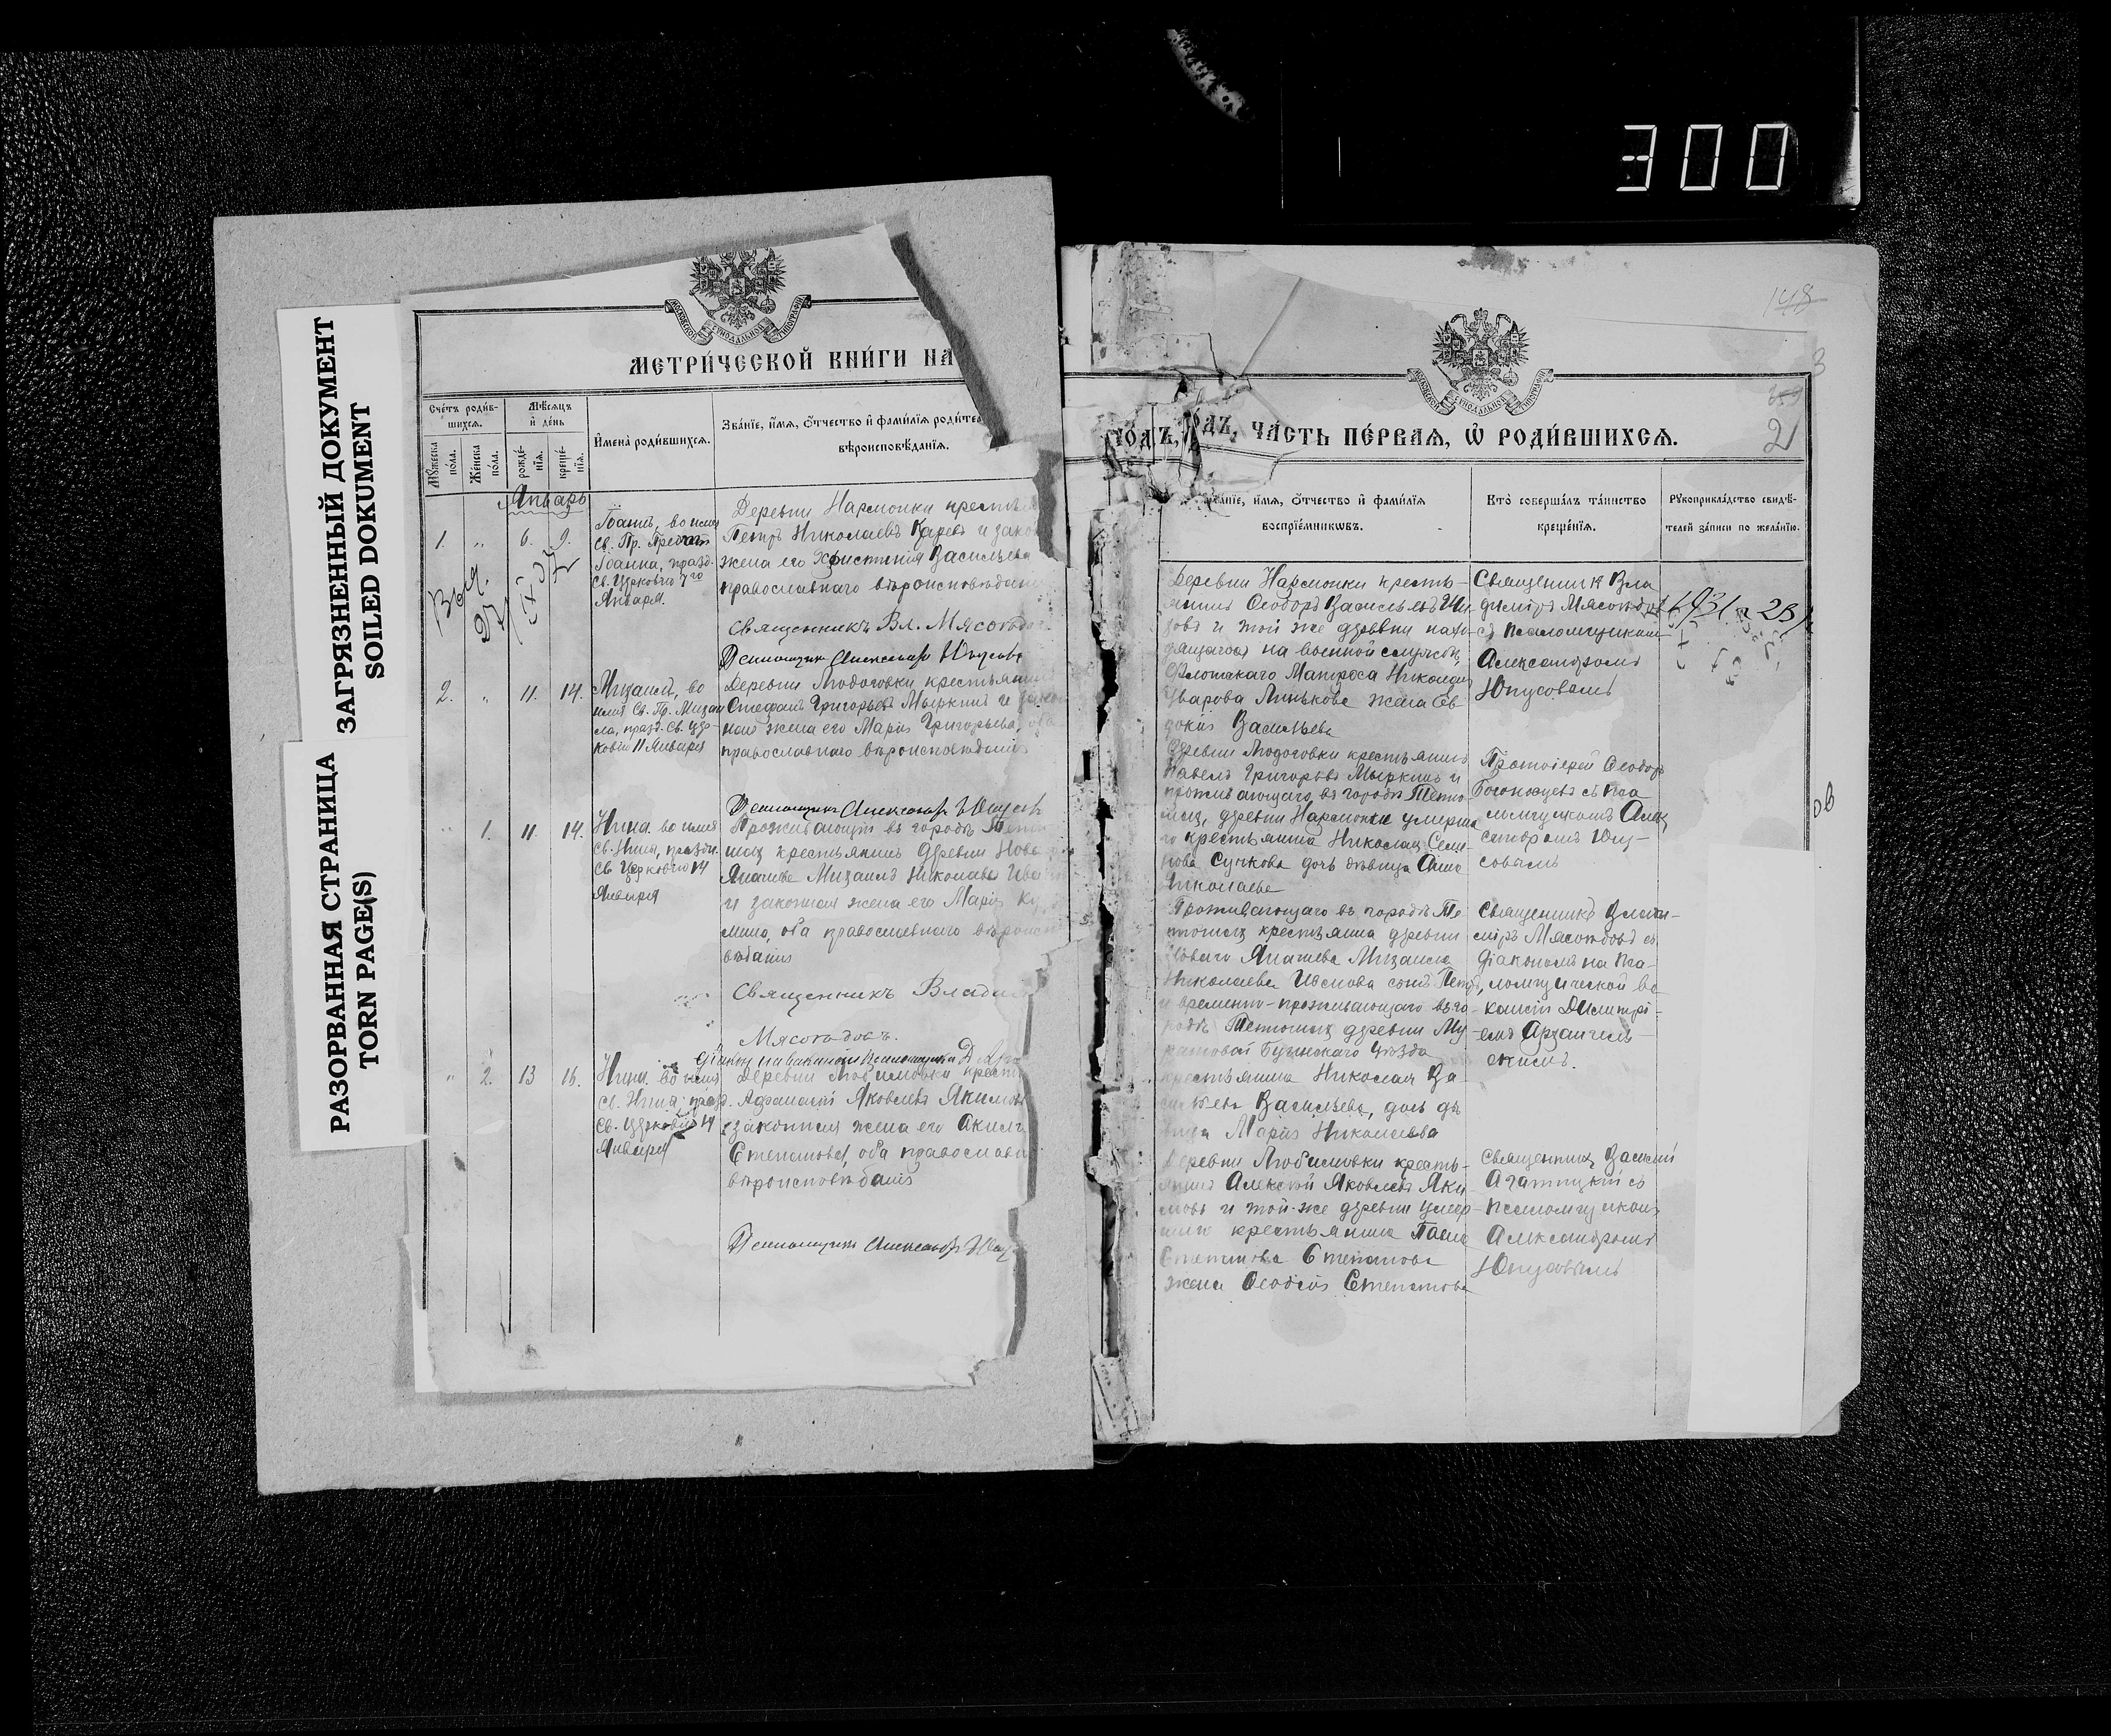 300
ЗАГРЯЗНЕННЫЙ ДОКУМЕНТ
SOILED DOKUMENT
РАЗОРВАННАЯ СТРАНИЦА
TORN PAGE(S)
МОСКОВСКОЙ СУНОДАЛЬНОЙ ТИПОГРАФІИ
МЕТРИ́ЧЕСКОЙ КНИ́ГИ НА
Сче́тъ роди́в-
шихсѧ.
Мѣ́сѧцъ
и҆ де́нь
Мꙋ́жеска
по́ла.
Же́нска
по́ла.
рожде́-
нїѧ.
креще́-
нїѧ.
И҆мена̀ роди́вшихсѧ.
Зва́нїе, и҆́мѧ, ѻ҆́тчество и҆ фами́лїѧ роди́те
вѣроисповѣ́данїѧ.
Январь
1. " 6. 9.
Іоаннъ, во имя
Св. Пр. Предт.
Іоанна, празд.
Св. Церковію 7го
Января.
Деревни Нармонки крестья
Петръ Николаевъ Каревъ и зако
жена его Христинія Васильева
православнаго вѣроисповѣдані
Священникъ Вл. Мясоѣдо
Псаломщикъ Александръ Юнусовъ
2. " 11. 14.
Михаилъ, во
имя Св. Пр. Михаи
ла, празд. Св. Цер-
ковію 11 Января
Деревни Людоговки крестьянин
Стефанъ Григорьевъ Мыркинъ и закон
ная жена его Марія Григорьева, оба
православнаго вѣроисповѣданія
Псаломщикъ Александръ Юнусов
" 1. 11. 14.
Нина. во имя
Св. Нины, праздн.
Св. Церковію 14
Января
Проживающій въ городѣ Тетю
шахъ крестьянинъ деревни Нова
Апачева Михаилъ Николаевъ Ива
и законная жена его Марія Ку
мина, оба православнаго вѣроисп
вѣданія
Священникъ Влади
Мясоѣдовъ.
діаконъ на вакансіи Псаломщика Д. Арха
" 2. 13 16.
Нина. во имя
Св. Нины, празд.
Св. Церковію 14
Января
Деревни Любимовки крестья
Афанасій Яковлевъ Якимовъ
законная жена его Акили
Степанова, оба православн
вѣроисповѣданія
Псаломщикъ Александръ Юну
148
3
21
МОСКОВСКОЙ СУНОДАЛЬНОЙ ТИПОГРАФІИ
ГО́ДЪ, ЧА́СТЬ ПЕ́РВАѦ, Ѡ҆ РОДИ́ВШИХСѦ.
Зва́нїе, и҆́мѧ, ѻ҆́тчество и҆ фами́лїѧ
воспрїе́мникѡвъ.
Кто̀ соверша́лъ та́инство
креще́нїѧ.
Рꙋкоприкла́дство свидѣ́-
телей за́писи по жела́нїю.
Деревни Нармонки кресть-
янинъ Ѳеодоръ Васильевъ
и той же деревни нахо-
дящагося на военной службѣ,
Флотскаго Матроса Николая
Уварова Линькова жена Ев-
докія Васильева
Священникъ Вла
диміръ Мясоѣдовъ
съ псаломщикомъ
Александромъ
Юнусовымъ
Деревни Людоговки крестьянинъ
Павелъ Григорьевъ Мыркинъ и
проживающаго въ городѣ Тетю-
шахъ, деревни Нармонки умерша
го крестьянина Николая Семе
нова Сучкова дочь дѣвица Анна
Николаева
Протоіерей Ѳеодоръ
Богоносцевъ съ пса
ломщикомъ Алек
сандромъ Юну-
совымъ
Проживающаго въ городѣ Те-
тюшахъ крестьянина деревни
Новаго Апачева Михаила
Николаева Иванова сынъ Петръ,
и временно-проживающаго въ го-
родѣ Тетюшахъ деревни Му
ратовой Буинскаго Уѣзда
крестьянина Николая Ва
сильева Васильева, дочь дѣ
вица Марія Николаева
Священникъ Влади-
міръ Мясоѣдовъ съ
діакономъ на пса-
ломщической ва-
кансіи Димитрі-
емъ Архангель-
скимъ.
Деревни Любимовки кресть-
янинъ Алексѣй Яковлевъ Яки-
мовъ и той-же деревни умер-
шаго крестьянина Павла
Степанова Степанова
жена Ѳеодосія Степанова
Священникъ Василій
Агатицкій съ
псаломщикомъ
Александромъ
Юнусовымъ
ов